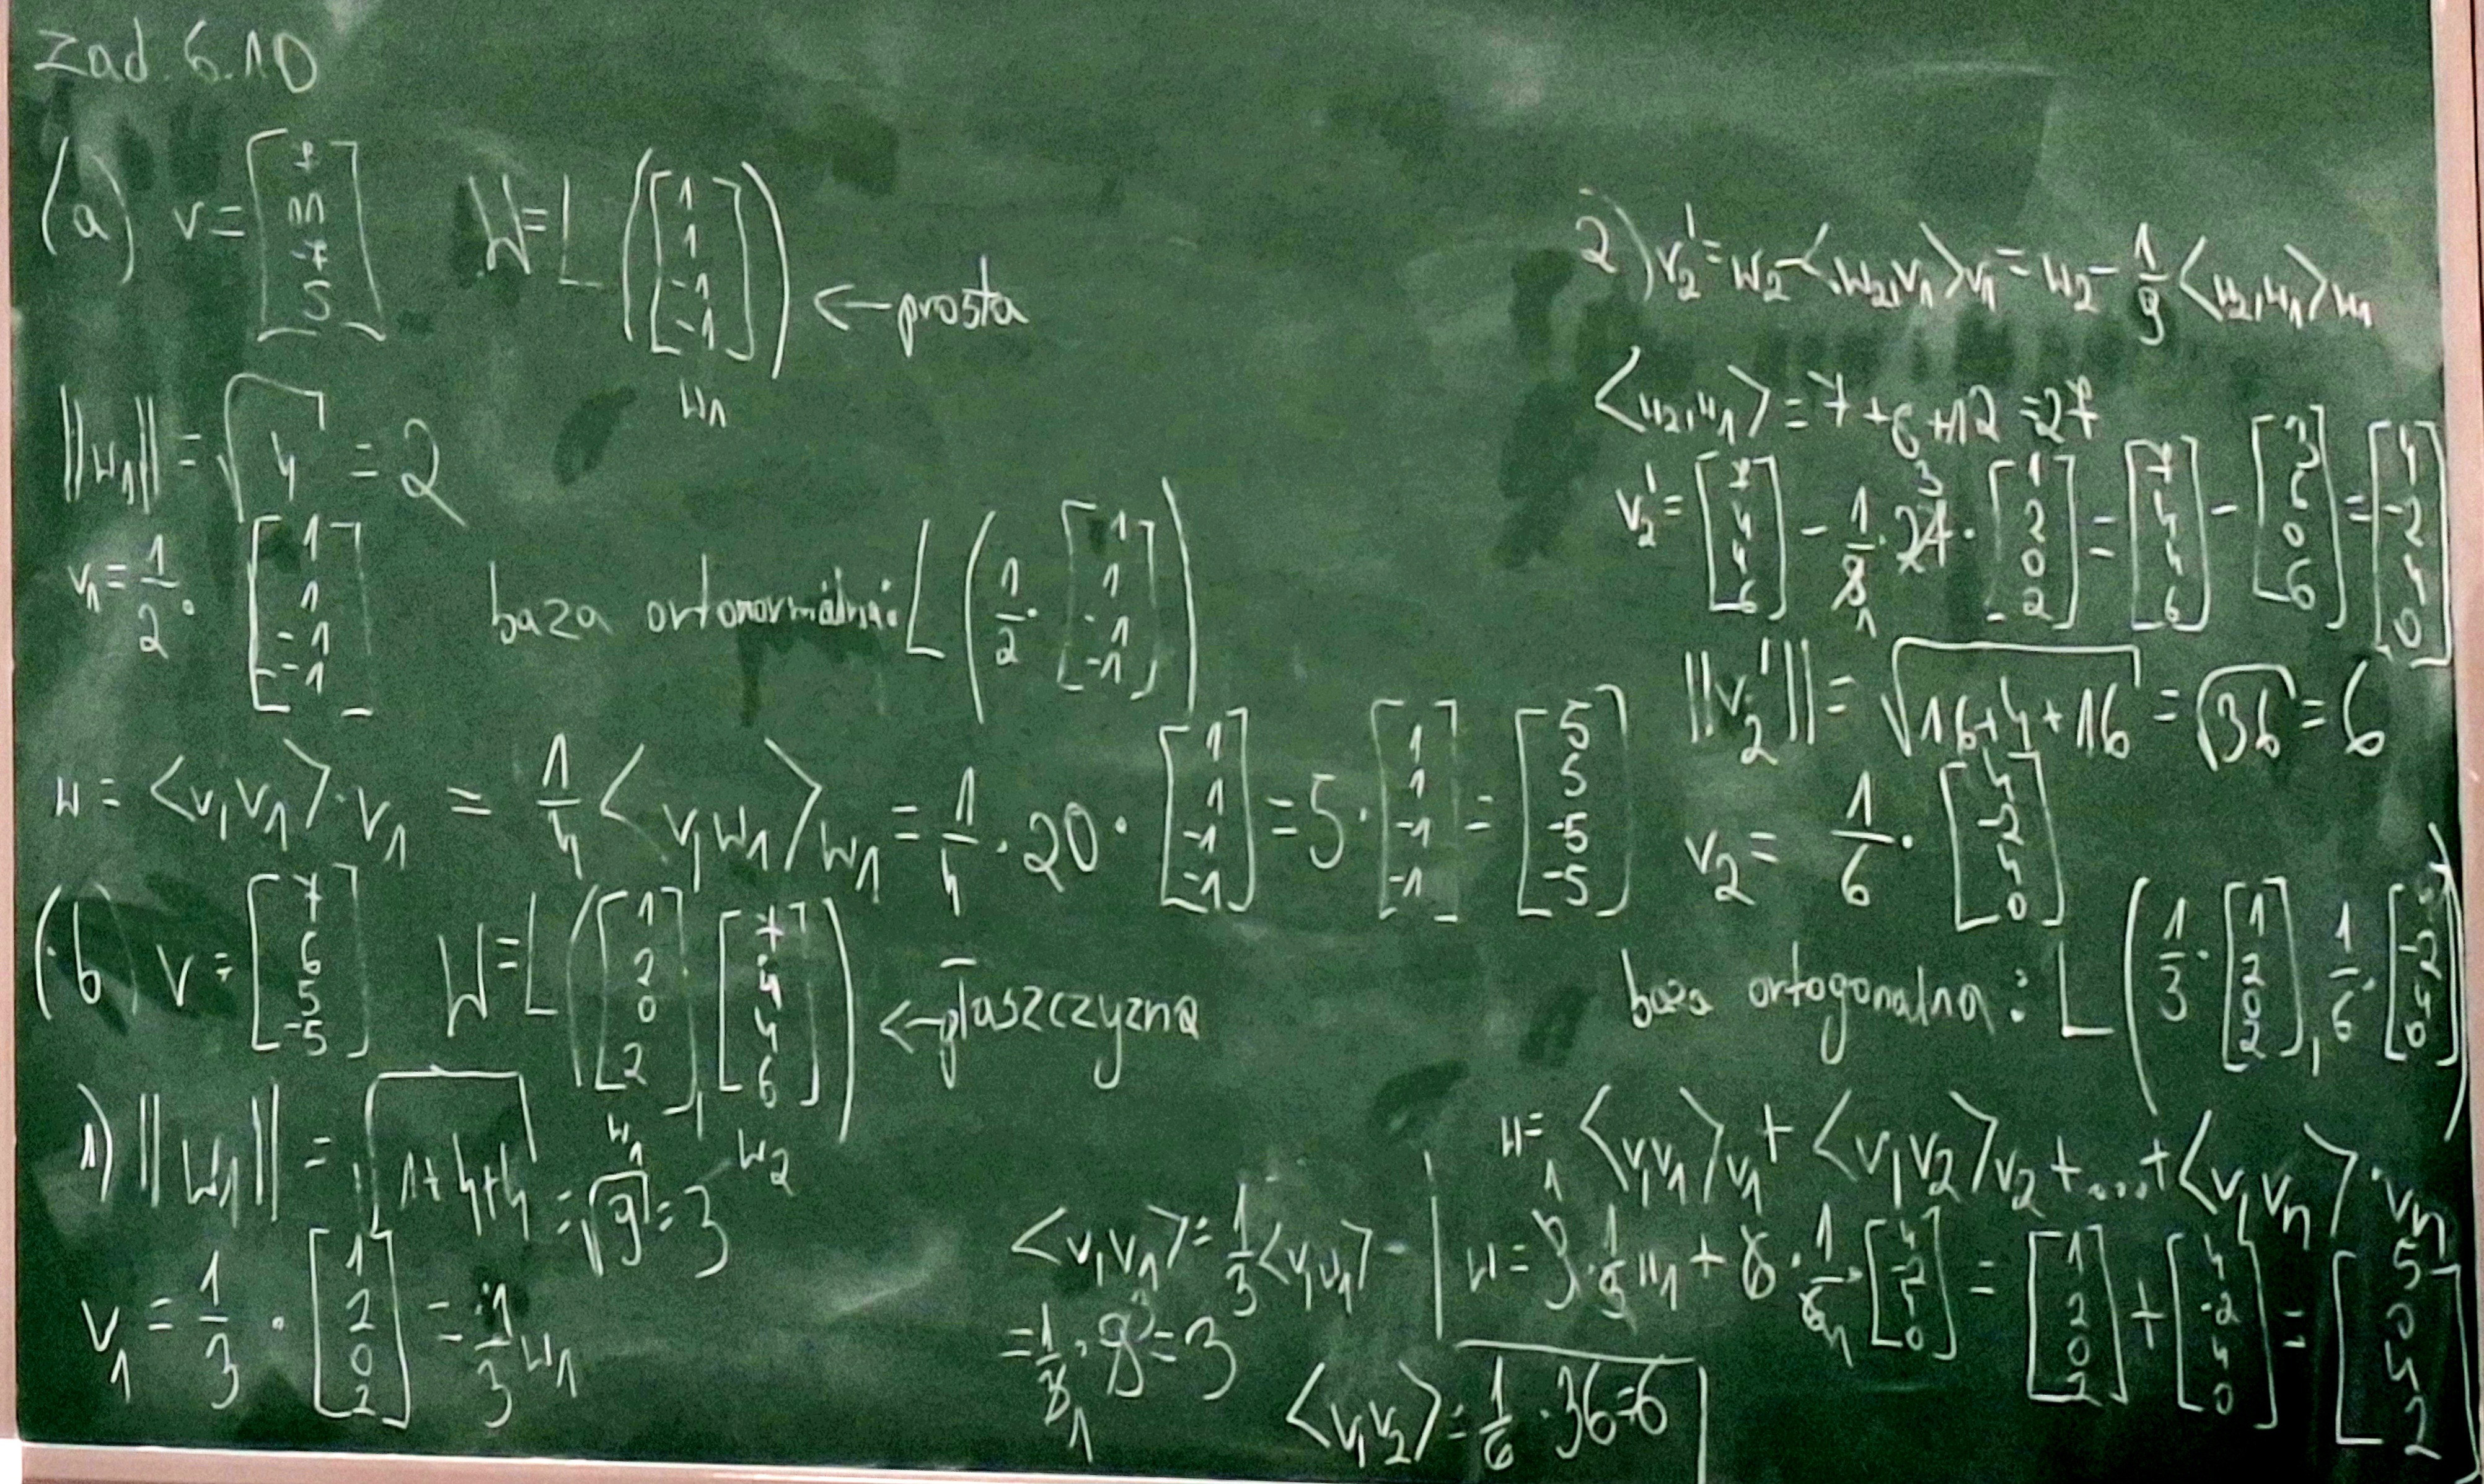 Zad. 6.10
(a) v = [7 11 -7 5] W = L([1 1 -1 -1]) ← prosta
w₁
||w₁|| = √4 = 2
v₁ = 1/2 · [1 1 -1 -1] baza ortonormalna: L(1/2 · [1 1 -1 -1])
w = <v, v₁> · v₁ = 1/4 <v, w₁> w₁ = 1/4 · 20 · [1 1 -1 -1] = 5 · [1 1 -1 -1] = [5 5 -5 -5]
(b) v = [7 6 5 -5] W = L([1 2 0 2], [7 4 4 6]) ← płaszczyzna
w₁ w₂
1) ||w₁|| = √1+4+4 = √9 = 3
v₁ = 1/3 · [1 2 0 2] = 1/3 w₁
2) v₂' = w₂ - <w₂, v₁> v₁ = w₂ - 1/9 <w₂, w₁> w₁
<w₂, w₁> = 7 + 6 + 12 = 27
v₂' = [7 4 4 6] - 1/9 · 27 · [1 2 0 2] = [7 4 4 6] - [3 6 0 6] = [4 -2 4 0]
||v₂'|| = √16+4+16 = √36 = 6
v₂ = 1/6 · [4 -2 4 0]
baza ortogonalna: L(1/3 · [1 2 0 2], 1/6 · [4 -2 4 0])
w = <v, v₁> v₁ + <v, v₂> v₂ + ... + <v, vₙ> · vₙ
<v, v₁> = 1/3 <v, w₁>
= 1/3 · 9 = 3
<v, v₂> = 1/6 · 36 = 6
w = 3 · 1/3 w₁ + 6 · 1/6 · [4 -2 4 0] = [1 2 0 2] + [4 -2 4 0] = [5 0 4 2]